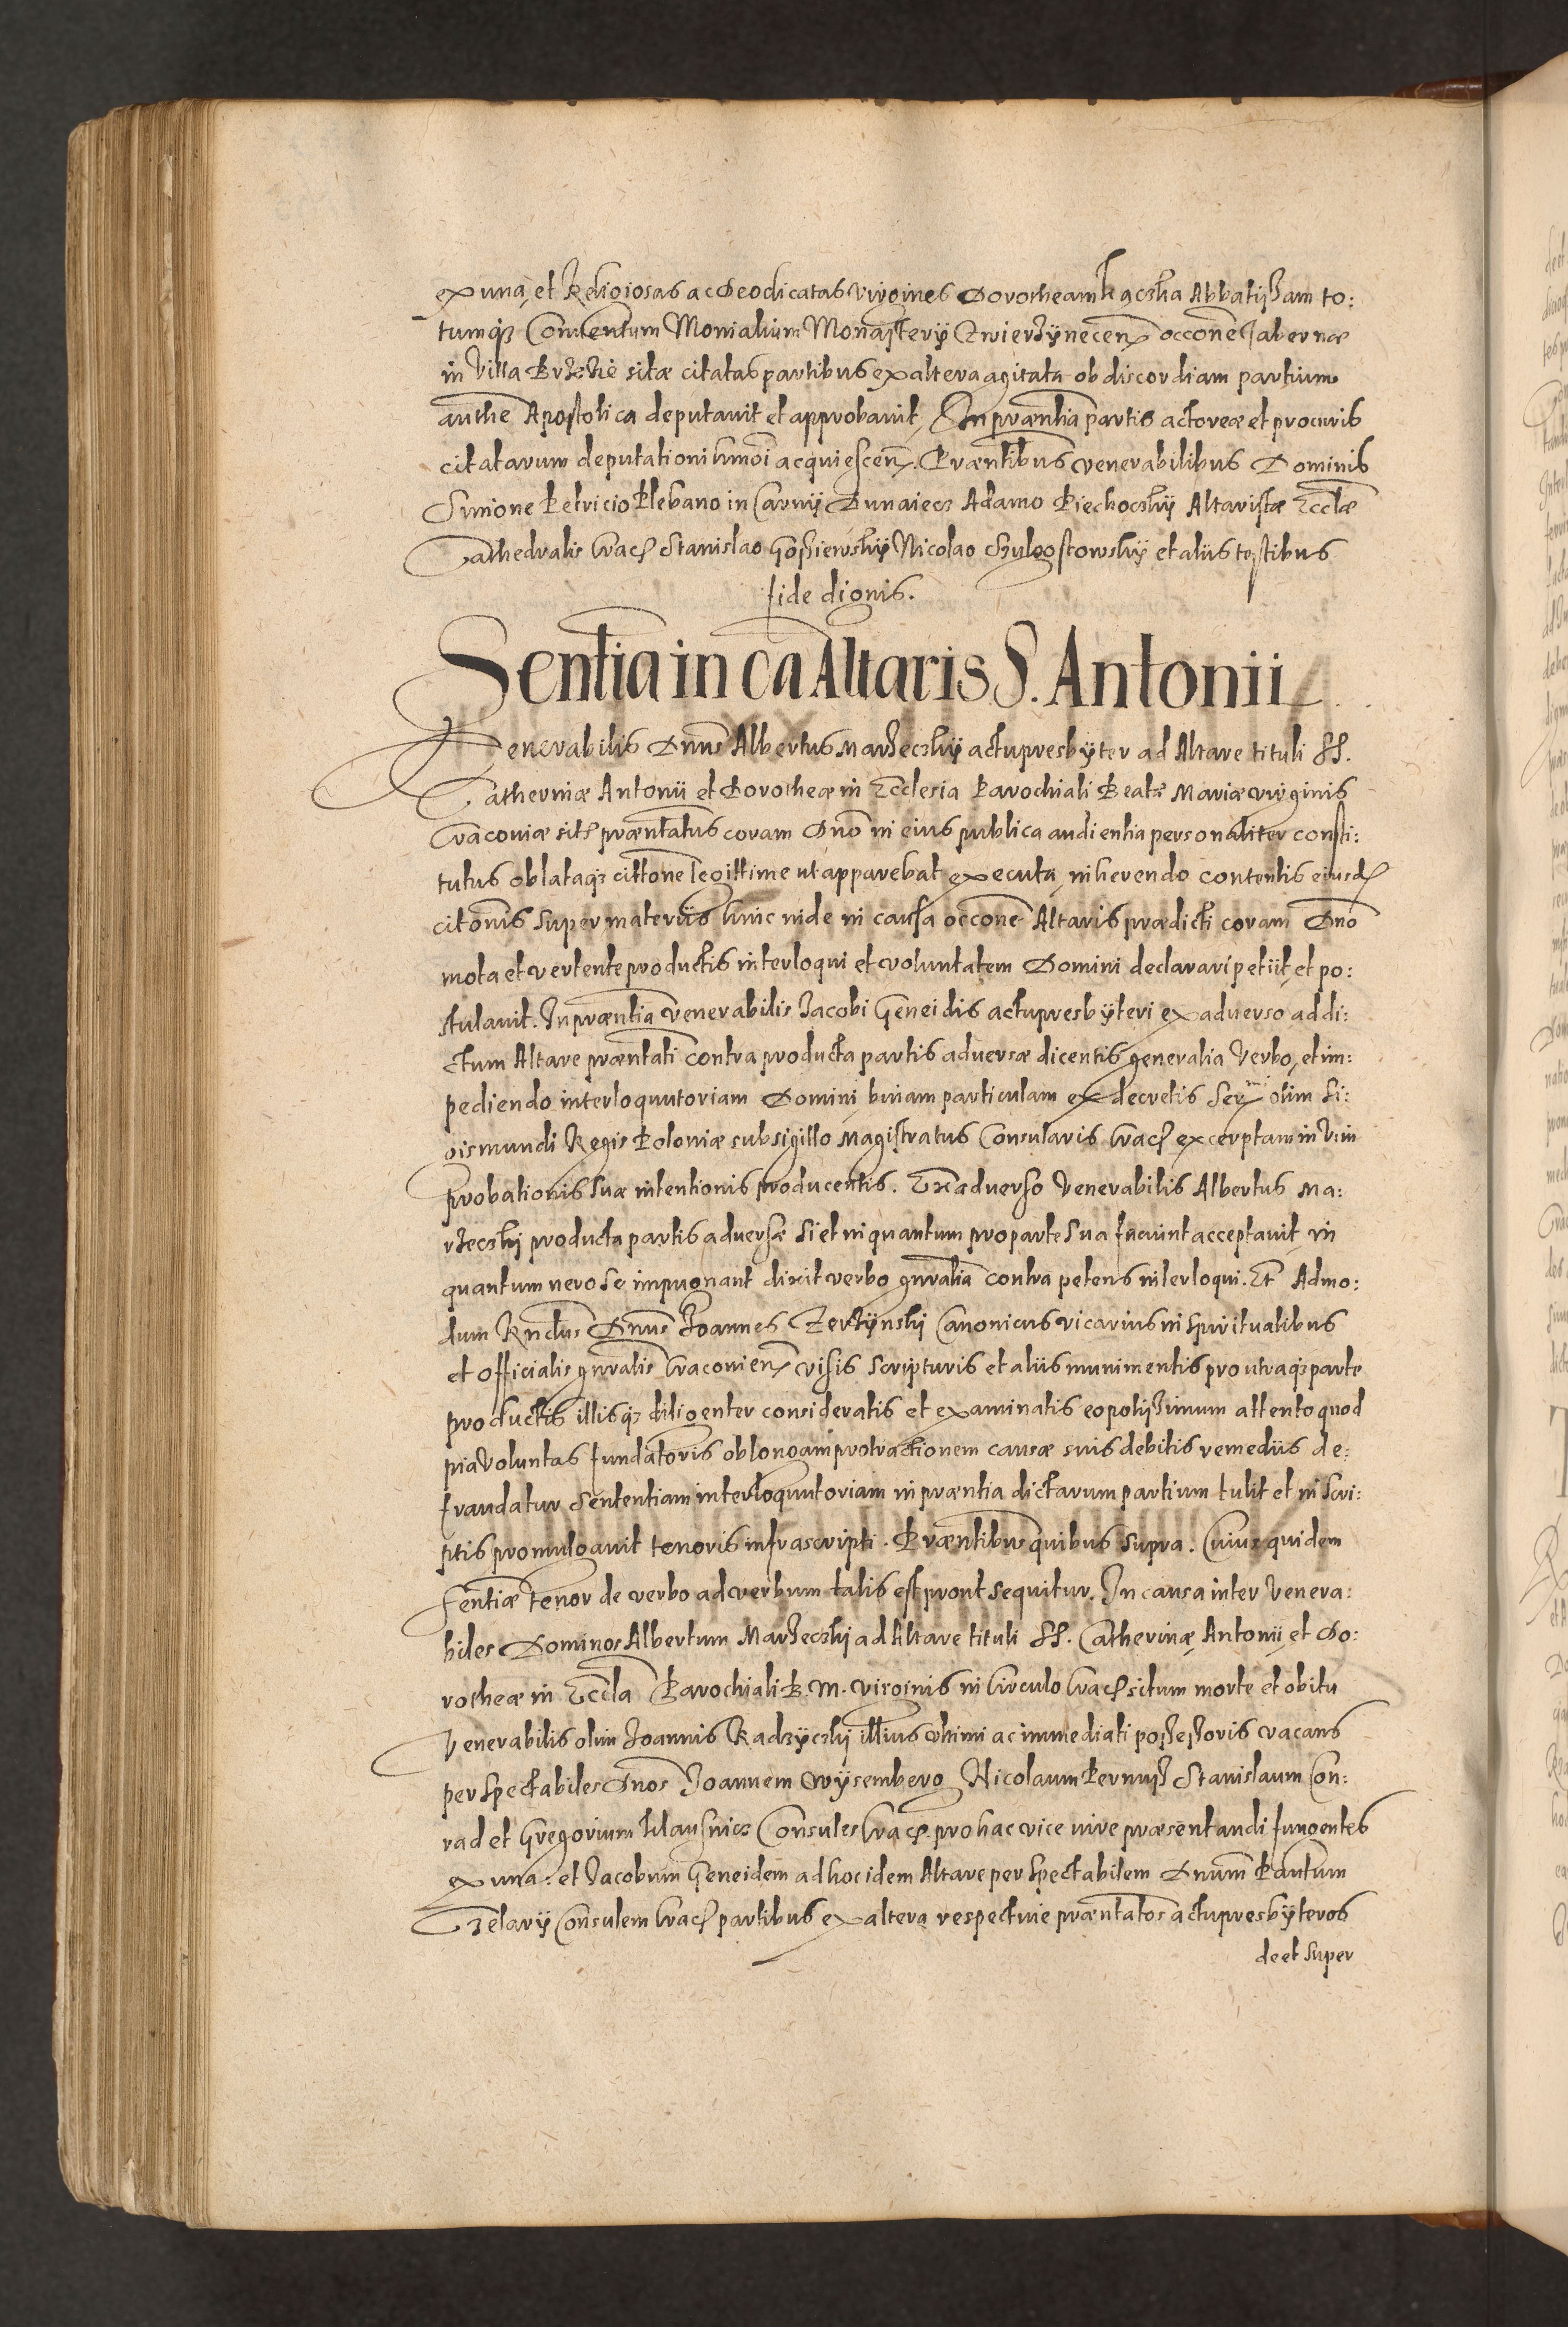 ex una, et Religiosas ac Deodicatas Virgines Dorotheam Kączka Abbatissam to:
tumq3 Conventum Monialium Monasterÿ Zwierzÿnecen occone Tabernæ
in Villa Brzezie sitæ citatas partibus ex altera agitata ob discordiam partium
authē Apostolica deputavit et approbavit, In præntia partis actoreæ et procuris
citatarum deputationi hmōi acquiescen. Præntibus venerabilibus Dominis
Simone Petricio Plebano in Carnÿ Dunaiecz Adamo Piechoczkÿ Altaristæ Ecclæ
Cathedralis Crac Stanislao Gossiewskÿ Nicolao Chylgostowskÿ et aliis testibus
fide dignis.
Sentīa in cā Altaris S. Antonii
Venerabilis Dnus Albertus Marzeczkÿ actupresbÿter ad Altare tituli SS.
Catherinæ Antonii et Dorotheæ in Ecclesia Parochiali Beatæ Mariæ virginis
Cracoviæ sit præntatus coram Dno in eius publica audientia personaliter consti:
tutus oblataq3 cittone legittime ut apparebat executa, inherendo contentis eiusd
citonis super materiis hinc inde in causa occone Altaris prædicti coram Dno
mota et vertente productis interloqui et voluntatem Domini declarari petiit, et po:
stulavit. In præntia venerabilis Jacobi Geneidis actupresbÿteri ex adverso ad di:
ctum Altare præntati contra producta partis adversæ dicentis generalia verbo, et im:
pediendo interloquutoriam Domini, binam particulam ex decretis Ser^mi olim Si:
gismundi Regis Poloniæ sub sigillo Magistratus Consularis Crac excerptam in vim
probationis suæ intentionis producentis. Ex adverso Venerabilis Albertus Ma:
rzeczkj producta partis adversæ si et in quantum pro parte sua faciunt acceptavit, in
quantum vero se impugnant dixit verbo gnralia contra petens interloqui. Et Admo:
dum Rndus Dnus Joannes Zerzÿnskj Canonicus vicarius in spiritualibus
et Officialis gnralis Cracovien, visis scripturis et aliis munimentis pro utraq3 parte
productis illisq3 diligenter consideratis et examinatis eo potissimum attento quod
pia voluntas fundatoris ob longam protractionem causæ suis debitis remediis de:
fraudatur sententiam interloquutoriam in præntia dictarum partium tulit et in scri:
ptis promulgavit tenoris infrascripti. Præntibus quibus supra. Cuius quidem
sentiæ tenor de verbo ad verbum talis est prout sequitur. In causa inter Venera:
biles Dominos Albertum Marzeczkj ad Altare tituli SS. Catherinæ, Antonij, et Do:
rotheæ in Eccla Parochiali B. M. virginis in Circulo Crac situm morte et obitu
Venerabilis olim Joannis Radzyczkj illius ultimi ac immediati possessoris vacans
per Spectabiles Dnos Joannem Wÿsemberg Nicolaum Pernuss Stanislaum Con:
rad et Gregorium Klausnicz Consules Crac. pro hac vice iure præsentandi fungentes
ex una: et Jacobum Geneidem ad hoc idem Altare per Spectabilem Dnum Paulum
Celarÿ Consulem Crac partibus ex altera respective præntatos actupresbÿteros
de et super